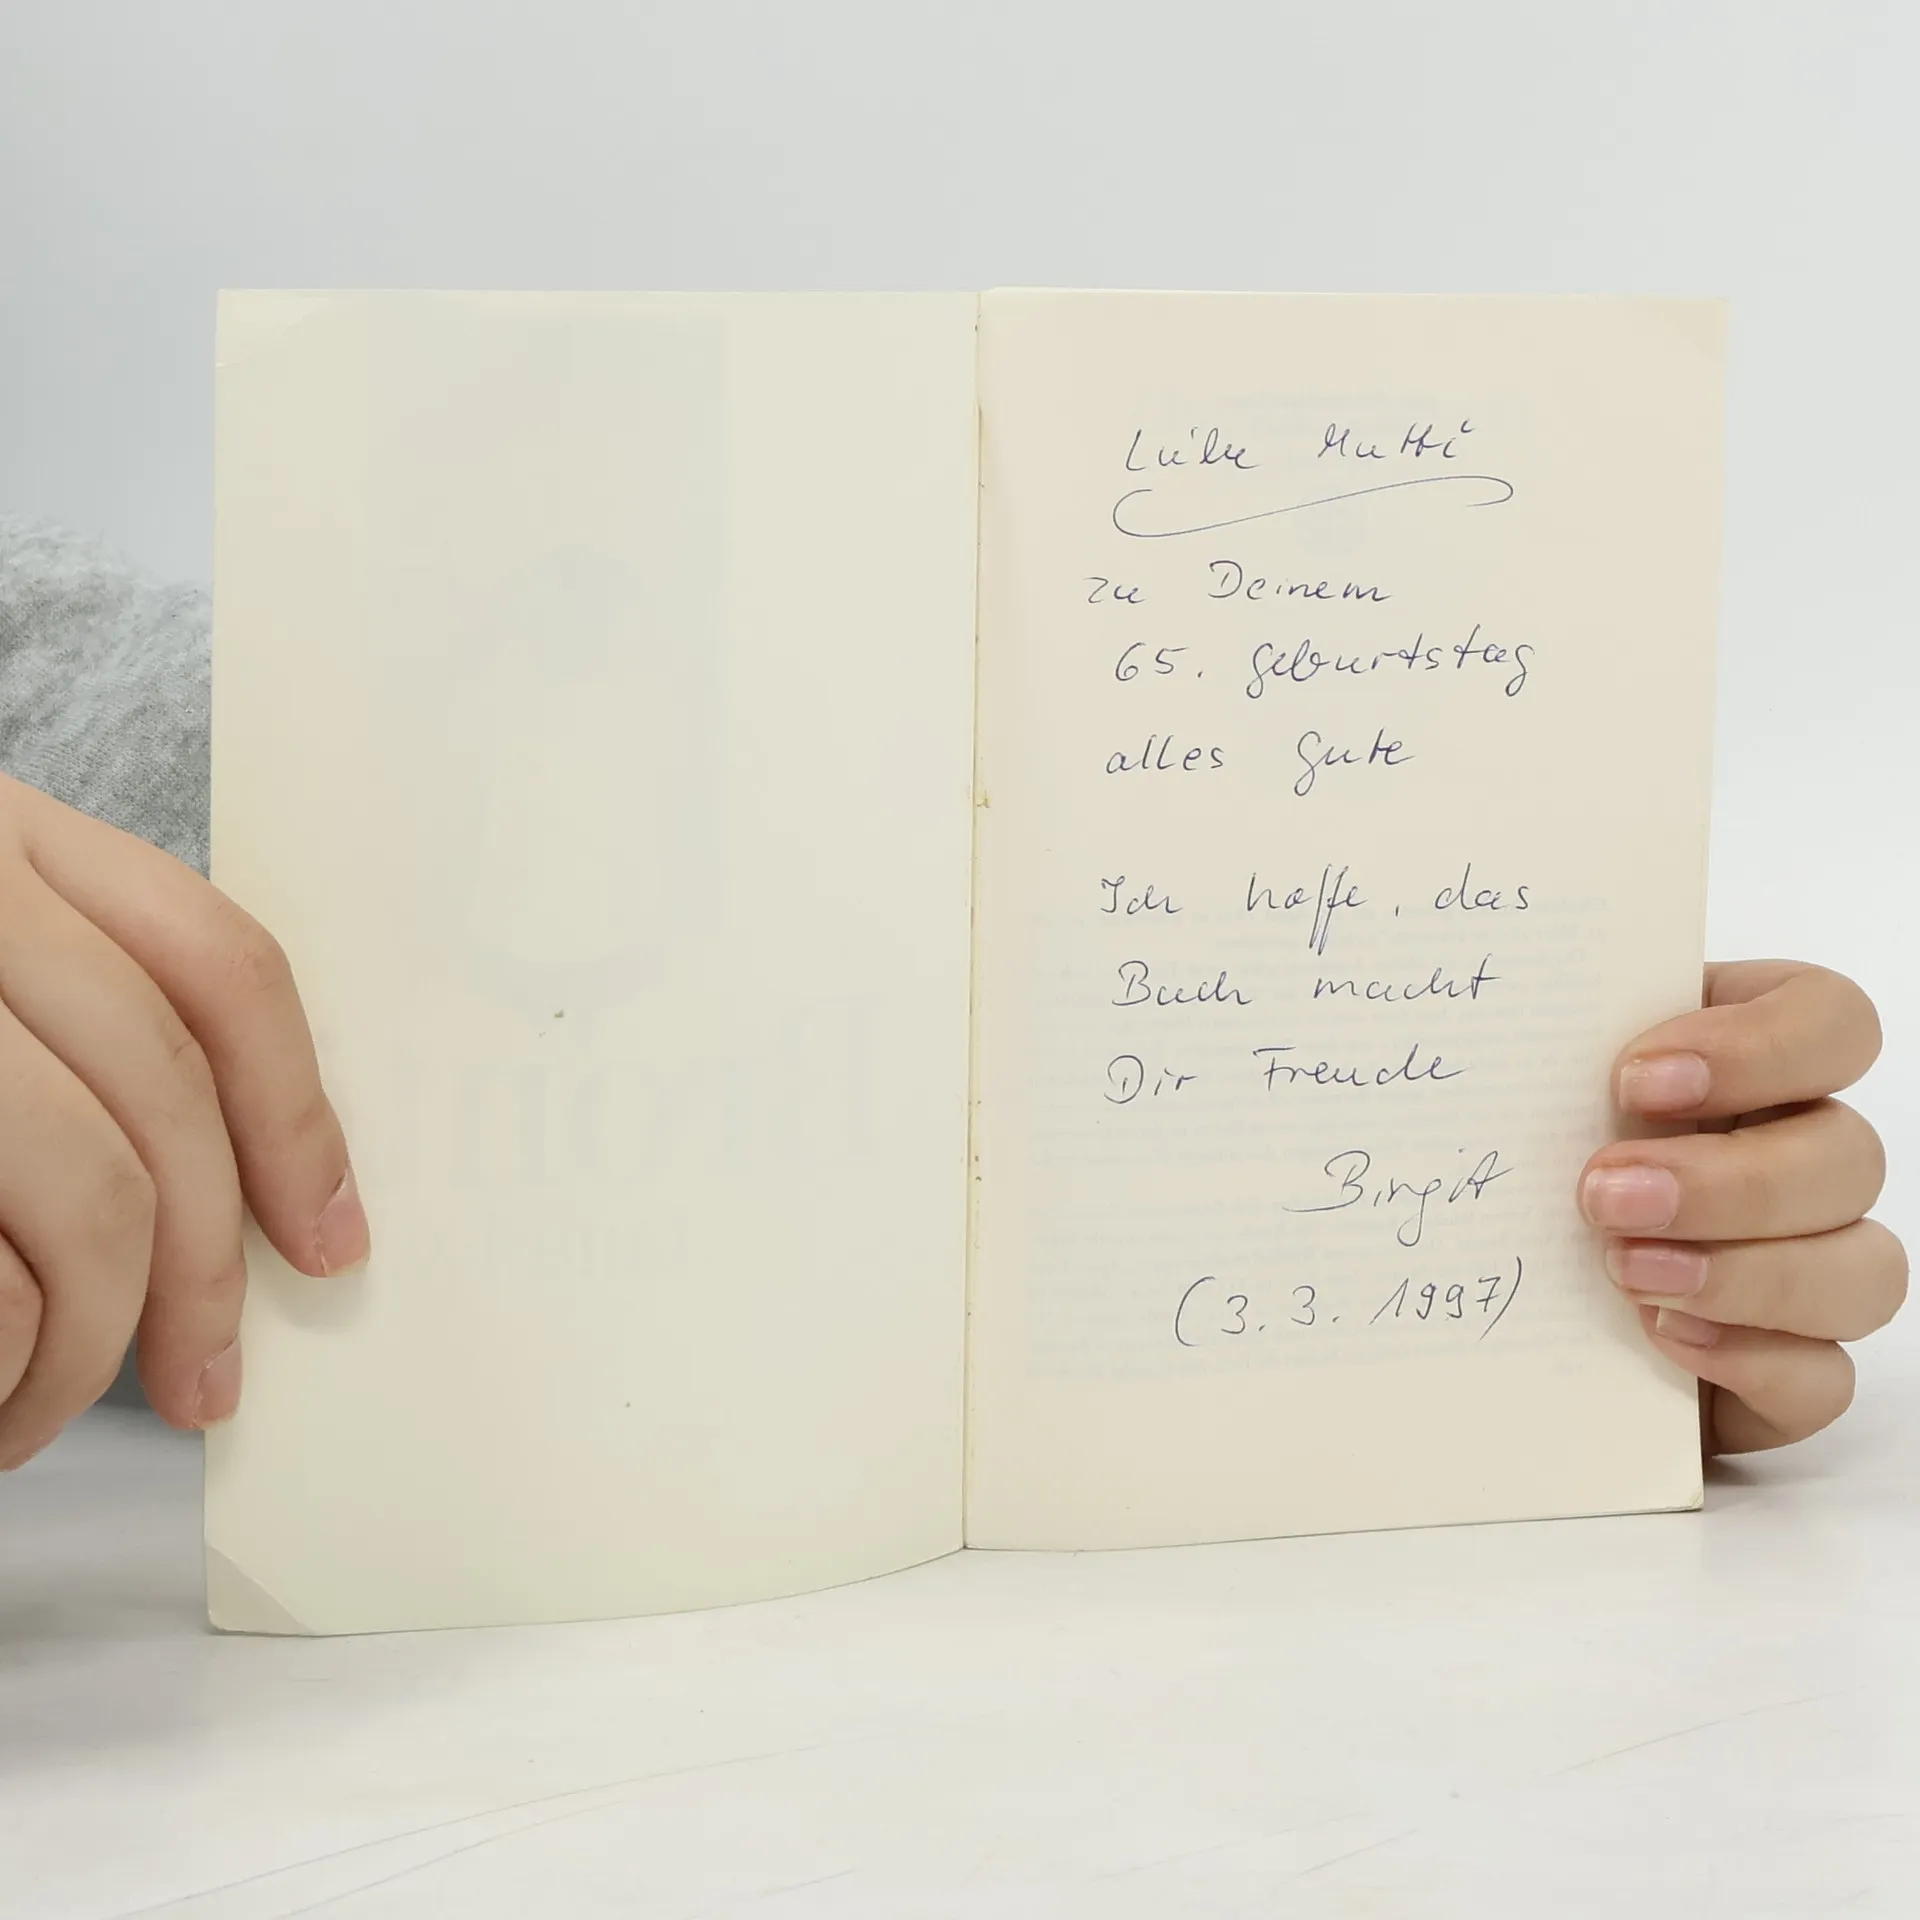 Liebe Mutti
zu Deinem
65. Geburtstag
alles Gute
Ich hoffe, das
Buch macht
Dir Freude
Birgit
(3.3.1997)